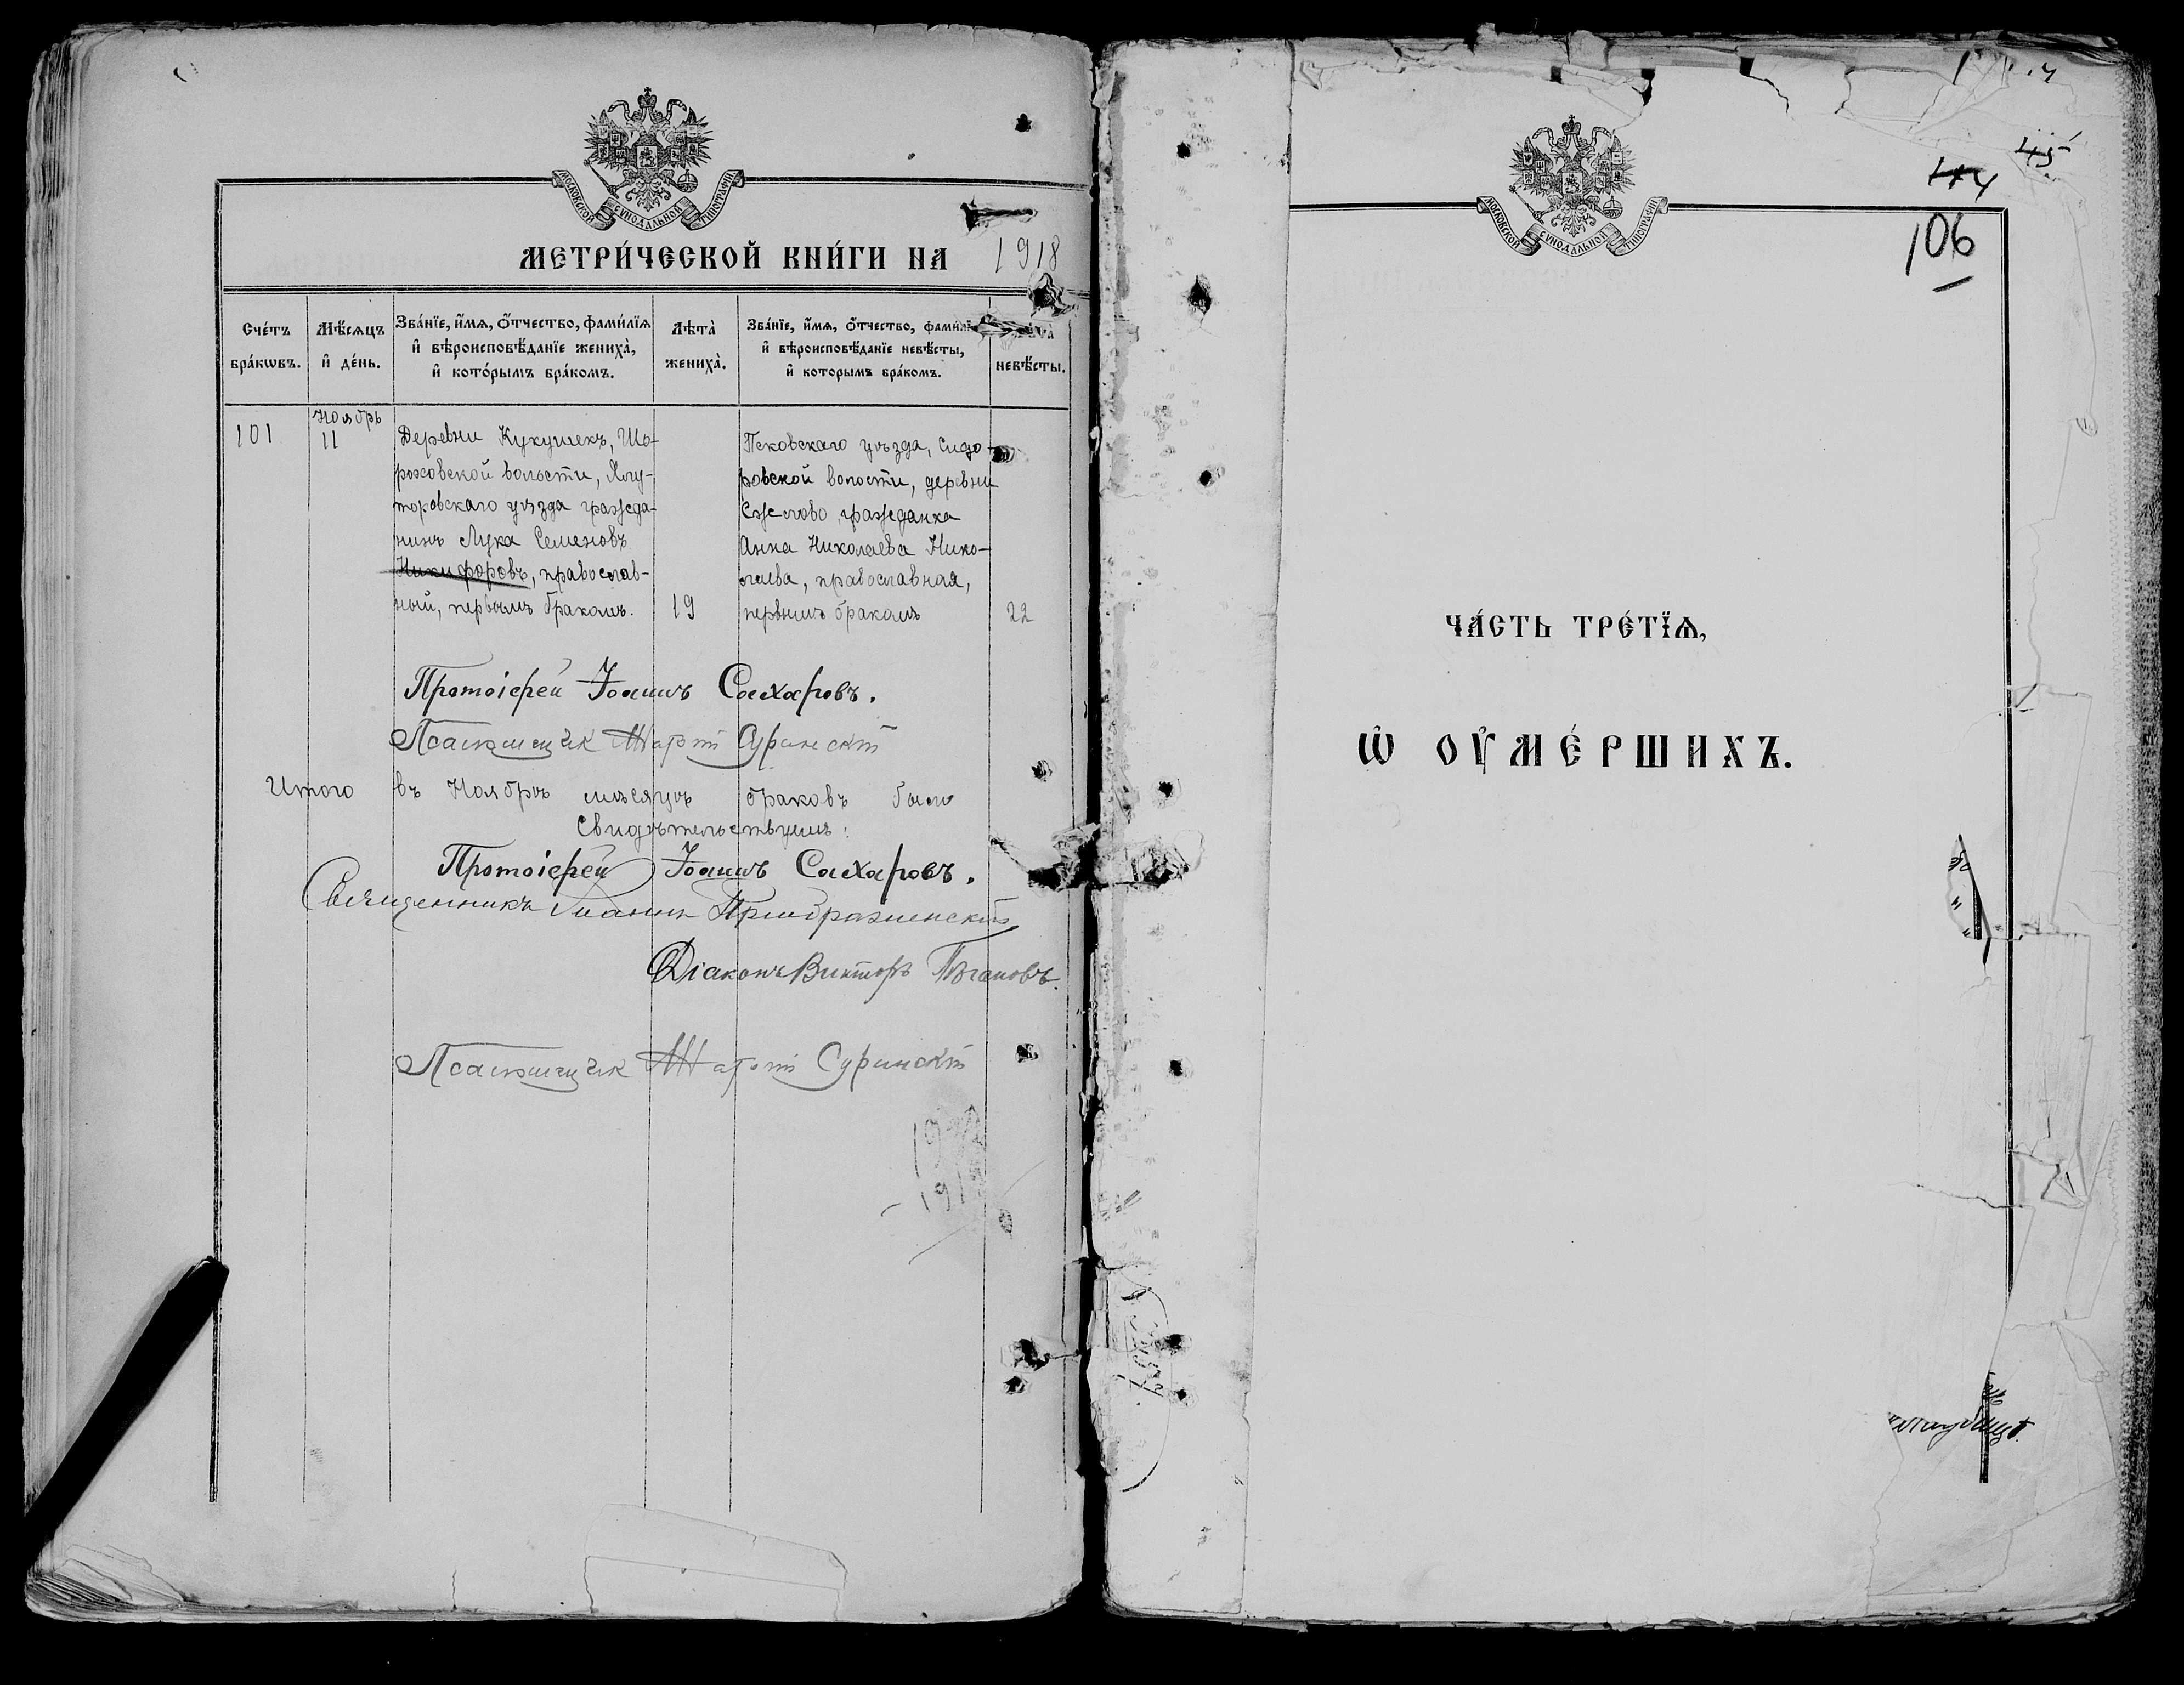 МОСКОВСКОЙ СѴНОДАЛЬНОЙ ТИПОГРАФІИ
МЕТРИ́ЧЕСКОЙ КНИ́ГИ НА 1918
Сче́тъ бра́кѡвъ.
Мѣ́сяцъ и҆ де́нь.
Зва́нїе, и҆́мѧ, ѻ҆́тчество, фами́лїѧ
и҆ вѣроисповѣ́данїе жениха̀,
и҆ кото́рымъ бра́комъ.
Лѣта̀ жениха̀.
Зва́нїе, и҆́мѧ, ѻ҆́тчество, фами́лї
и҆ вѣроисповѣ́данїе невѣ́сты,
и҆ которымъ бра́комъ.
невѣ́сты.
101
Ноябрь
11
Деревни Кукушекъ, Шо-
роховской волости, Ялу-
торовскаго уѣзда гражда-
нинъ Лука Семеновъ
Никифоровъ, православ-
ный, первымъ бракомъ.
19
Псковскаго уѣзда, Сидо-
ровской волости, деревни
гражданка
Анна Николаева Нико-
лаева, православная,
первымъ бракомъ
22
Протоіерей Іоаннъ Сахаровъ.
Псаломщик
Итого въ Ноябрѣ мѣсяцѣ браковъ было
Свидѣтельствуемъ:
Протоіерей Іоаннъ Сахаровъ.
Священникъ Іоаннъ Преображенскій
Діаконъ Викторъ
Псаломщик
МОСКОВСКОЙ СѴНОДАЛЬНОЙ ТИПОГРАФІИ
45
106
ЧА́СТЬ ТРЕ́ТЇѦ,
Ѡ҆ ОУ҆МЕ́РШИХЪ.